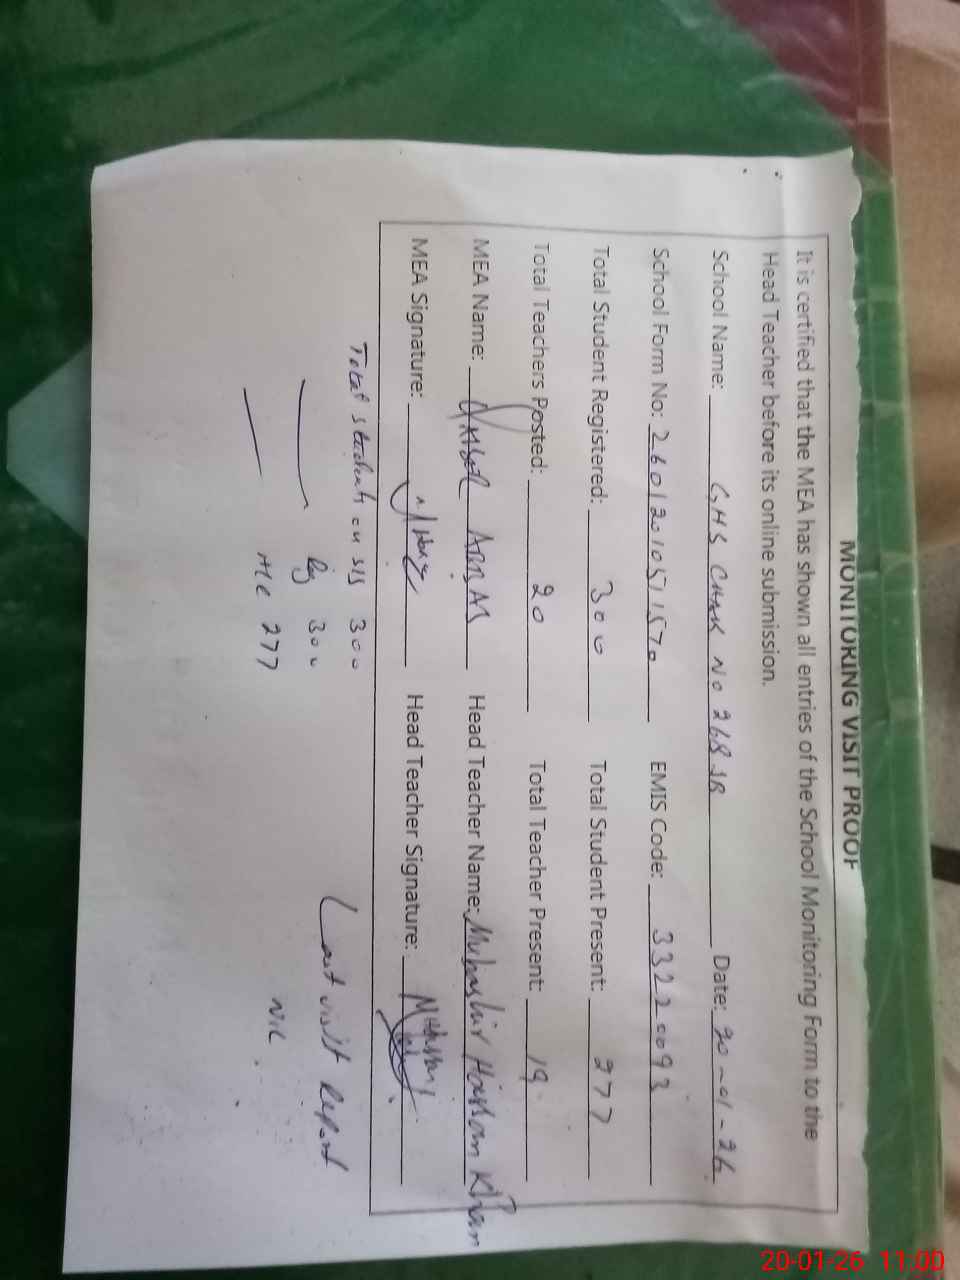 MONITORING VISIT PROOF
It is certified that the MEA has shown all entries of the School Monitoring Form to the
Head Teacher before its online submission.
School Name: GHS CHAK NO 268 JB Date: 20-01-26
School Form No: 26012010511570 EMIS Code: 33220093
Total Student Registered: 300 Total Student Present: 277
Total Teachers Posted: 20 Total Teacher Present: 19
MEA Name: Head Teacher Name: Mubashir Hassan Khan
MEA Signature: Head Teacher Signature:
Total students on SIS 300
Reg 300
HC 277
Last visit Report
NIL
20-01-26 11:00